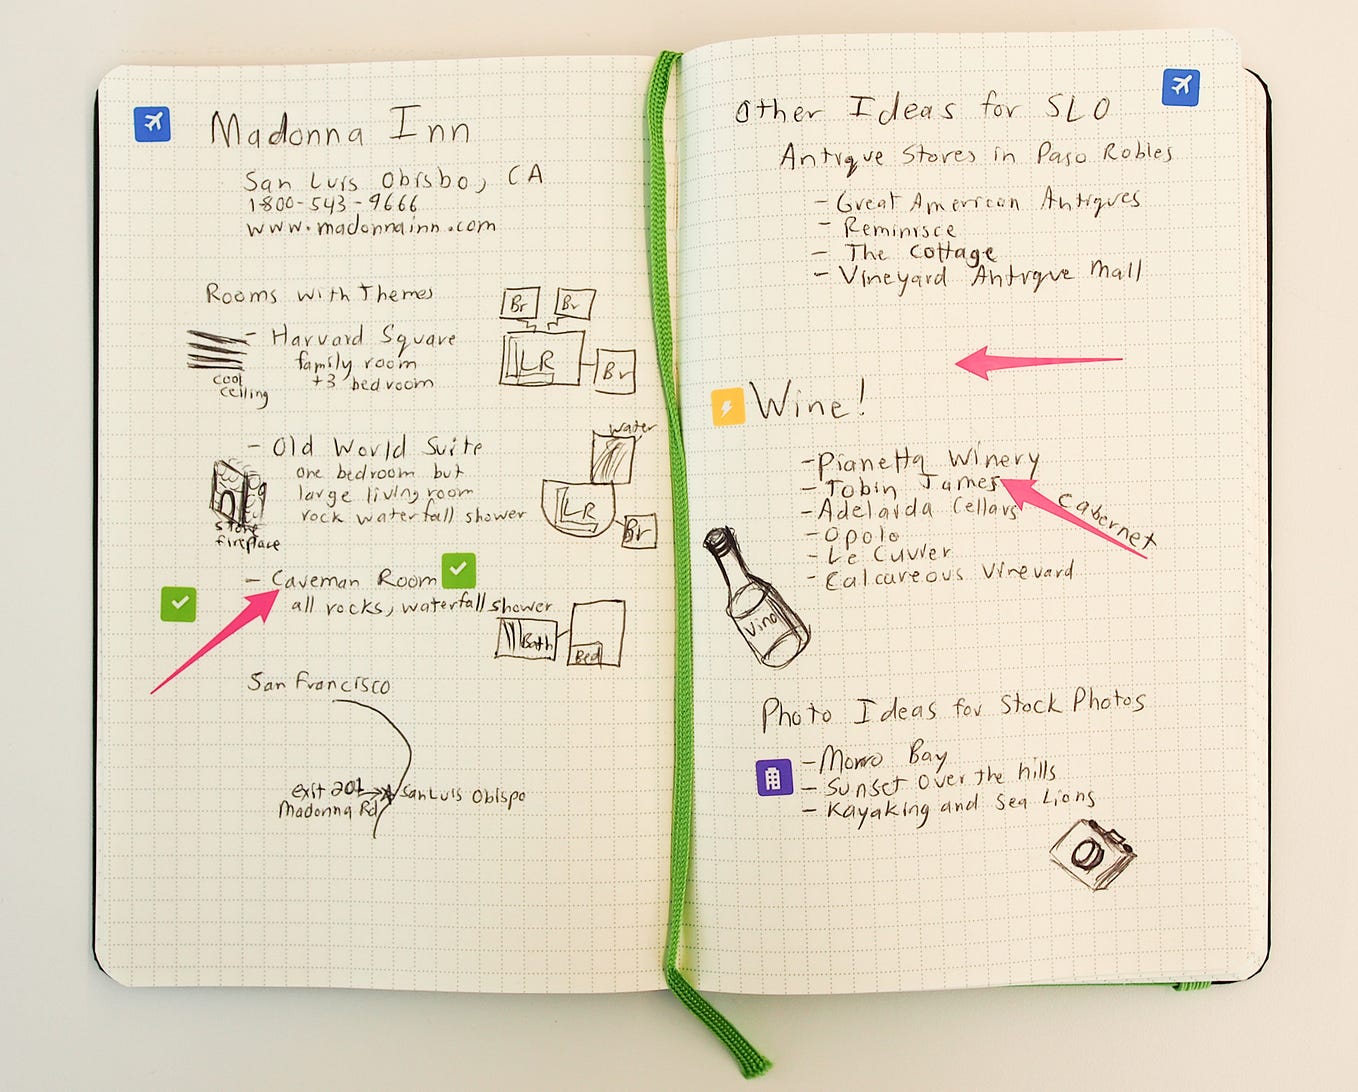 Madonna Inn
San Luis Obisbo, CA
1-800-543-9666
www.madonnainn.com
Rooms with Themes
- Harvard Square
family room
+3 bedroom
cool
ceiling
Br Br
LR
Br
- Old World Suite
one bedroom but
large living room
rock waterfall shower
stone
fireplace
water
LR
Br
- Caveman Room
all rocks, waterfall shower
Bath
Bed
San Francisco
exit 201
Madonna Rd
San Luis Obispo
Other Ideas for SLO
Antique Stores in Paso Robles
- Great American Antiques
- Reminisce
- The Cottage
- Vineyard Antique Mall
Wine!
- Pianetta Winery
- Tobin James
- Adelaida Cellars
Cabernet
- Opolo
- Le Cuvier
- Calcareous Vineyard
Vino
Photo Ideas for Stock Photos
- Morro Bay
- Sunset Over the hills
- Kayaking and Sea Lions